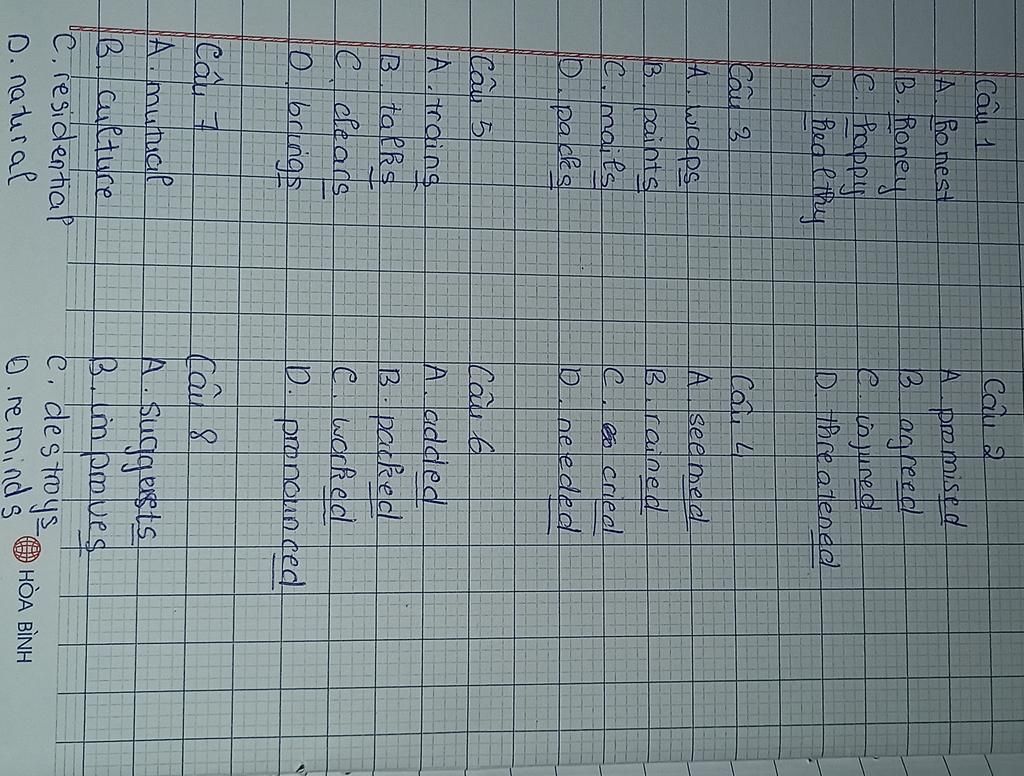 Câu 1
A. honest
B. honey
C. happy
D. healthy
Câu 2
A. promised
B. agreed
C. injured
D. threatened
Câu 3
A. wraps
B. paints
C. mails
D. packs
Câu 4
A. seemed
B. rained
C. cried
D. needed
Câu 5
A. trains
B. talks
C. clears
D. brings
Câu 6
A. added
B. packed
C. worked
D. pronounced
Câu 7
A. mutual
B. culture
C. residential
D. natural
Câu 8
A. suggests
B. improves
C. destroys
D. reminds
HÒA BÌNH